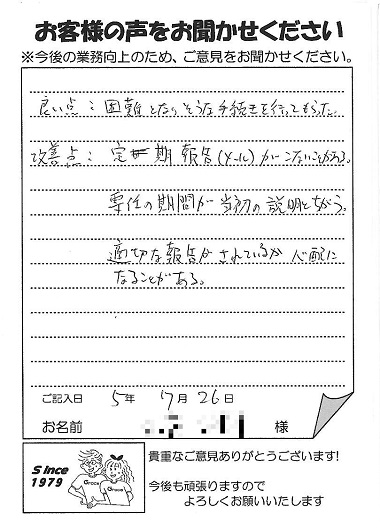 お客様の声をお聞かせください
※今後の業務向上のため、ご意見をお聞かせください。
良い点：困難となりそうな手続きを行ってもらった。
改善点：定期報告(メール)がこないことがある。
専任の期間が当初の説明とちがう。
適切な報告がされているか心配に
なることがある。
ご記入日 5年 7月 26日
お名前 様
Since
1979
Grace
Grace
貴重なご意見ありがとうございます!
今後も頑張りますので
よろしくお願いいたします